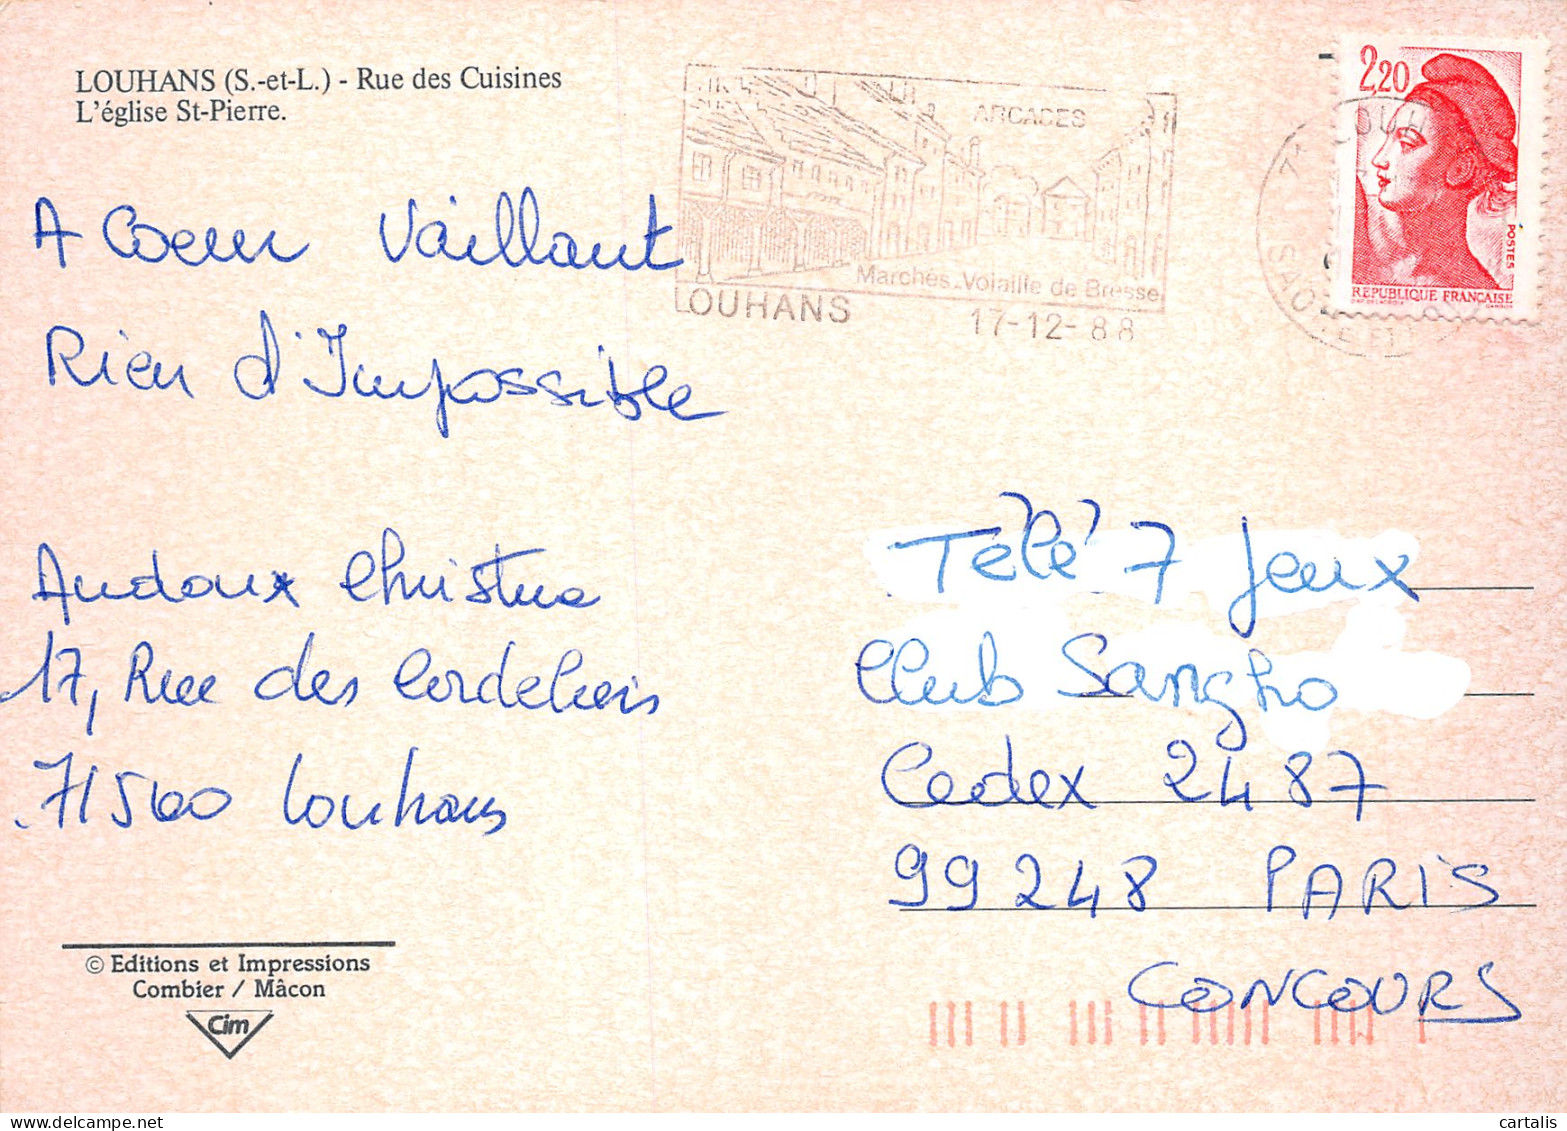 LOUHANS (S.-et-L.) - Rue des Cuisines
L'église St-Pierre.
ARCADES
Marchés. Volaille de Bresse
LOUHANS
17-12-88
2,20
POSTES
REPUBLIQUE FRANÇAISE
A Coeur Vaillant
Rien d'Impossible
Audoux Christine
17, Rue des Cordeliers
71500 Louhans
Télé 7 Jeux
Club Sangho
Cedex 2487
99248 PARIS
CONCOURS
© Editions et Impressions
Combier / Mâcon
Cim
cartalis